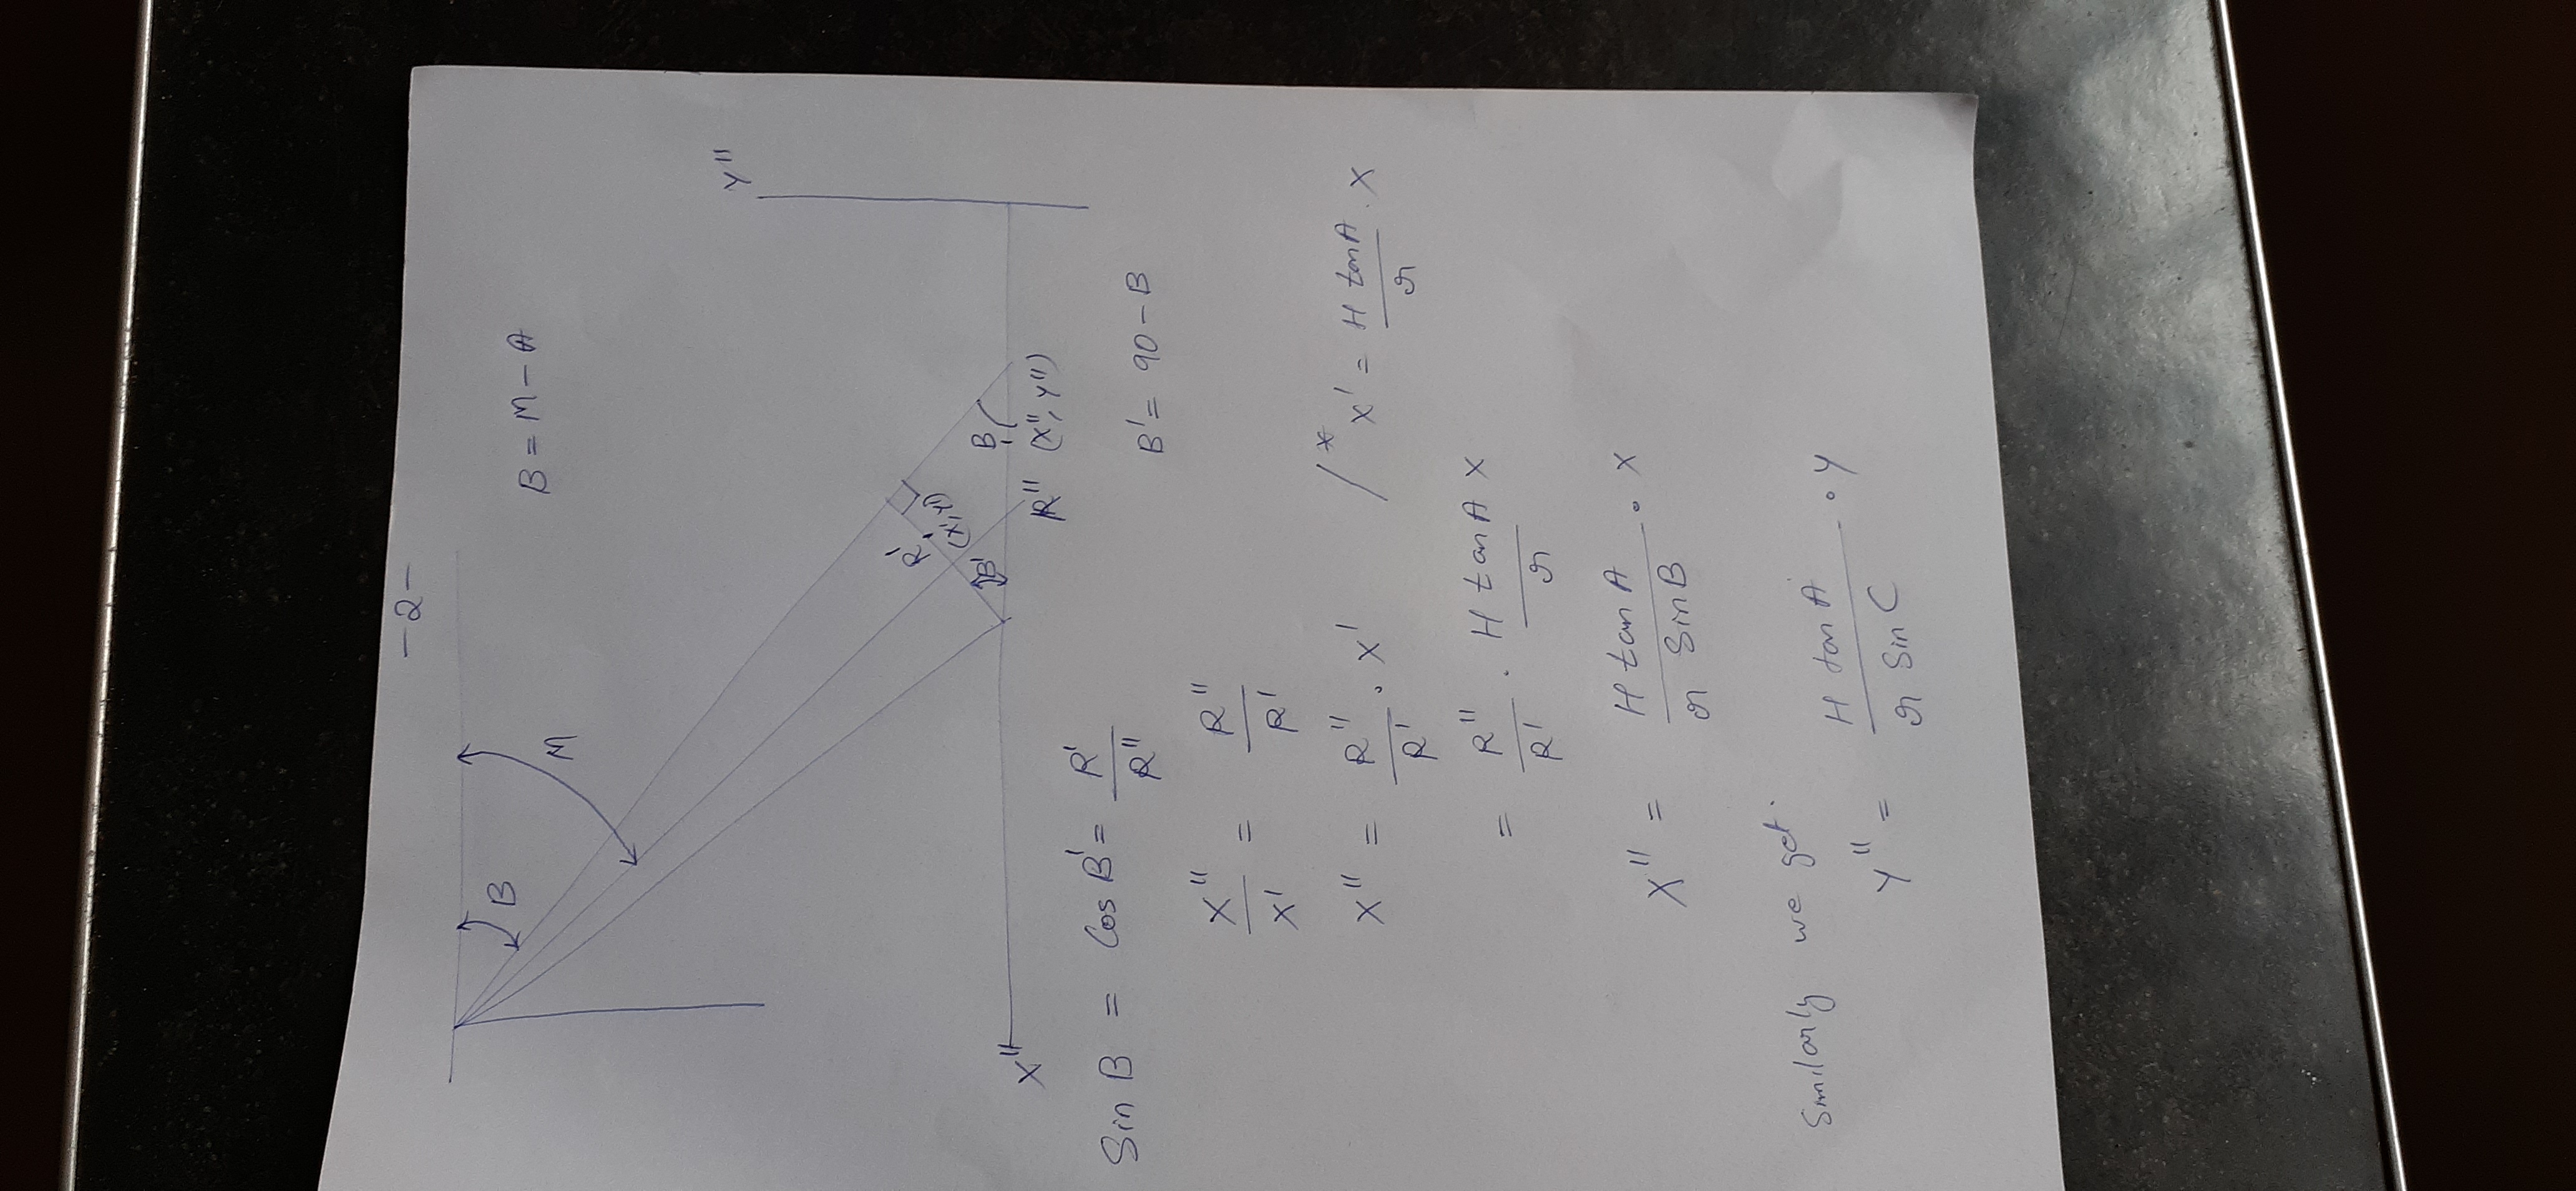 -2-
B = M - A
B
M
Y"
R'
(X', Y')
B
B'
R" (X", Y")
X"
B' = 90 - B
Sin B = Cos B' = R' / R"
X" / X' = R" / R'
X" = R" / R' . X' /* X' = H tan A / r . X
= R" / R' . H tan A / r X
X" = H tan A / r Sin B . X
Similarly we get.
Y" = H tan A / r Sin C . Y